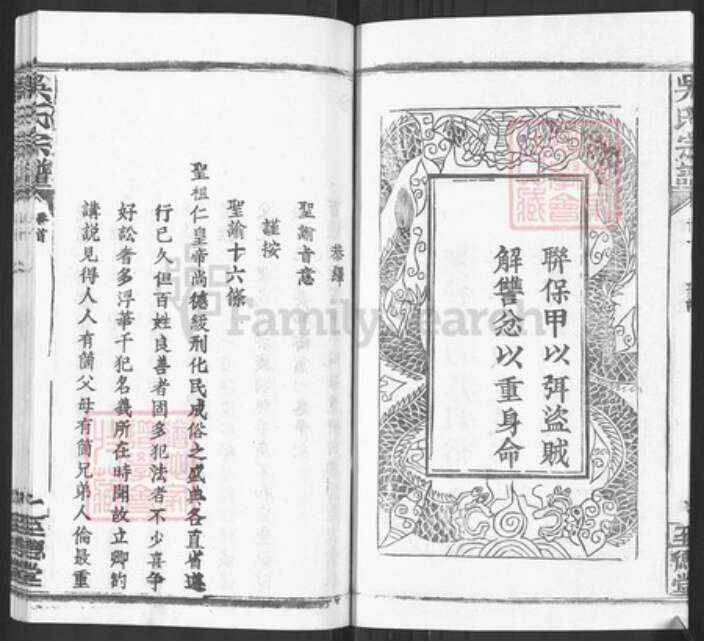 吳氏宗譜
聯保甲以弭盜賊
解讐忿以重身命
至德堂
恭繹
聖諭旨意
謹按
聖諭十六條
聖祖仁皇帝尚德緩刑化民成俗之盛典各直省遵
行已久但百姓良善者固多犯法者不少喜爭
好訟者多浮華干犯名義所在時聞故立鄉約
講說見得人人有箇父母有箇兄弟人倫最重
吳氏宗譜
卷首
至德堂
FamilySearch